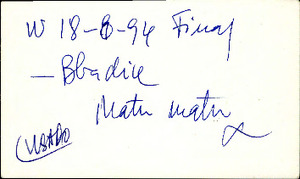 W 18-8-94 Final
— Bbadice
Matu matu
USADO